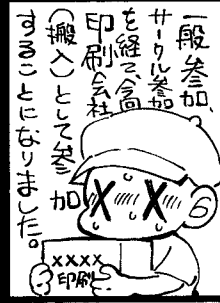 一般参加、
サークル参加
を経て、今回
印刷会社
(搬入)として参加
することになりました。
XXXX
印刷